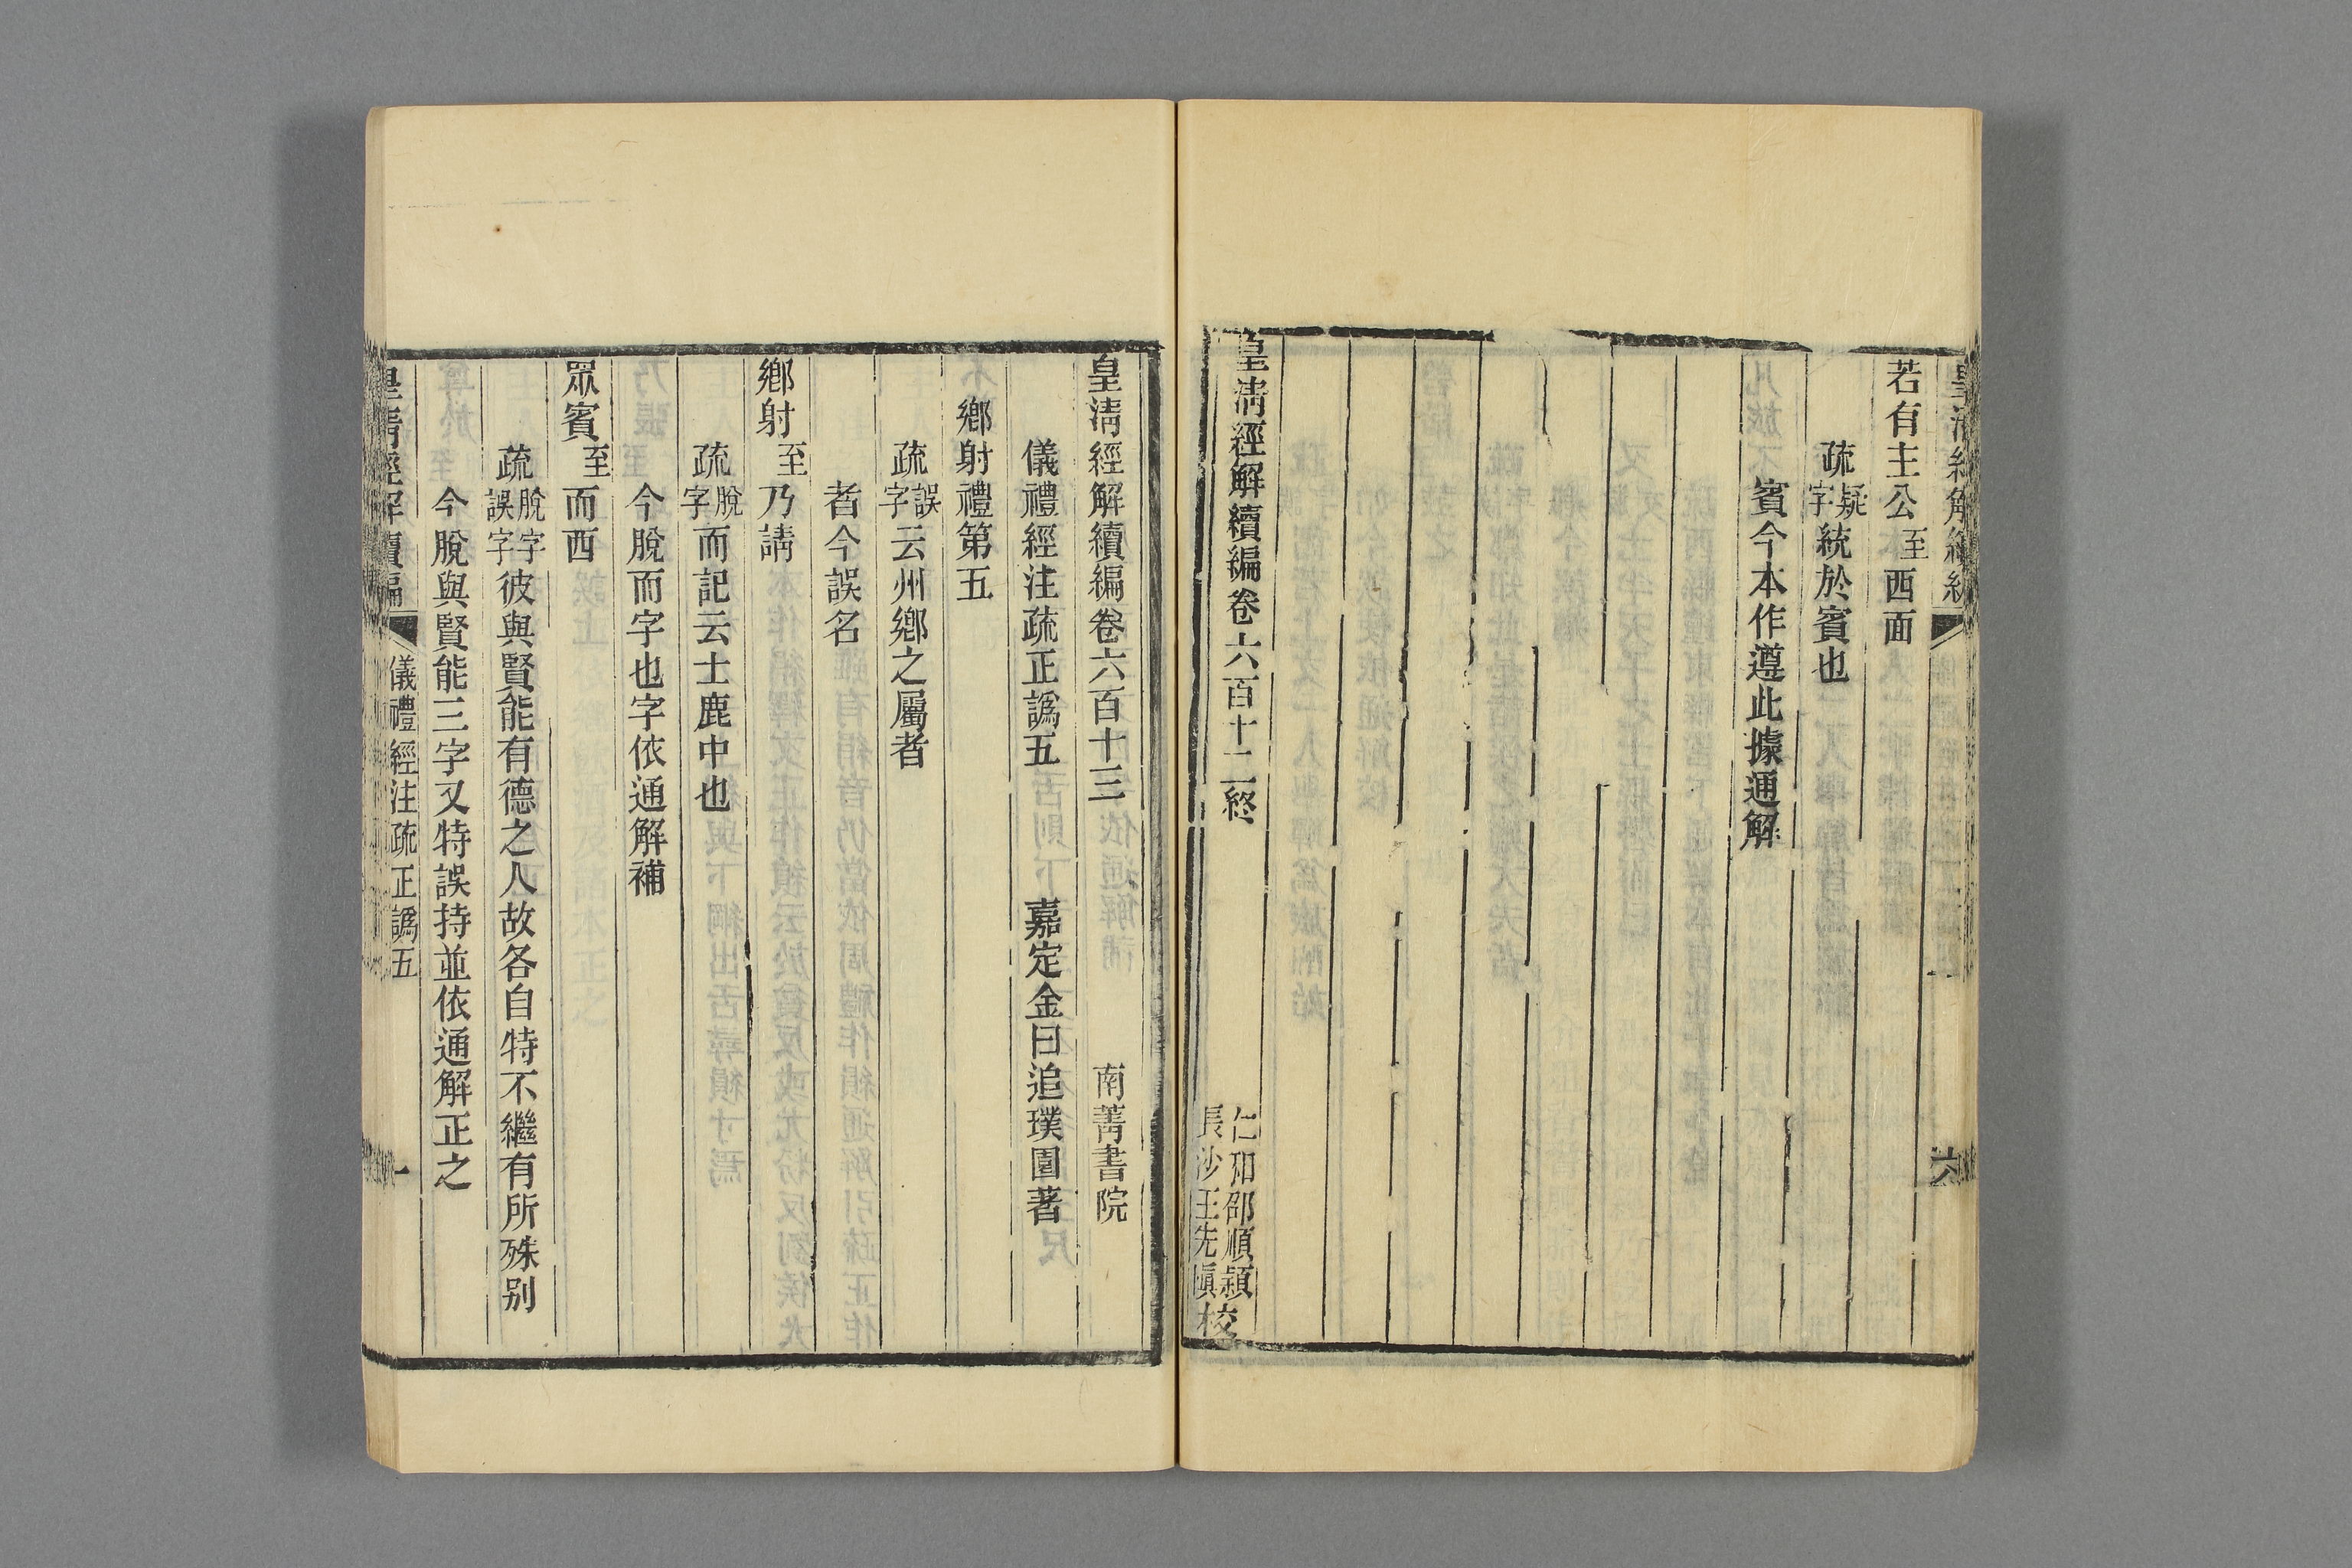 皇清經解續編
六
若有主公至西面
疏疑字統於賓也
賓今本作遵此據通解
皇清經解續編卷六百十二終
仁和邵順潁
長沙王先慎校
皇清經解續編卷六百十三
南菁書院
儀禮經注疏正譌五
嘉定金曰追璞園著
鄉射禮第五
疏誤字云州鄉之屬者
者今誤名
鄉射至乃請
疏脫字而記云士鹿中也
今脫而字也字依通解補
眾賓至而西
疏脫字誤字彼與賢能有德之人故各自特不繼有所殊别
今脫與賢能三字又特誤持並依通解正之
皇清經解續編
儀禮經注疏正譌五
一